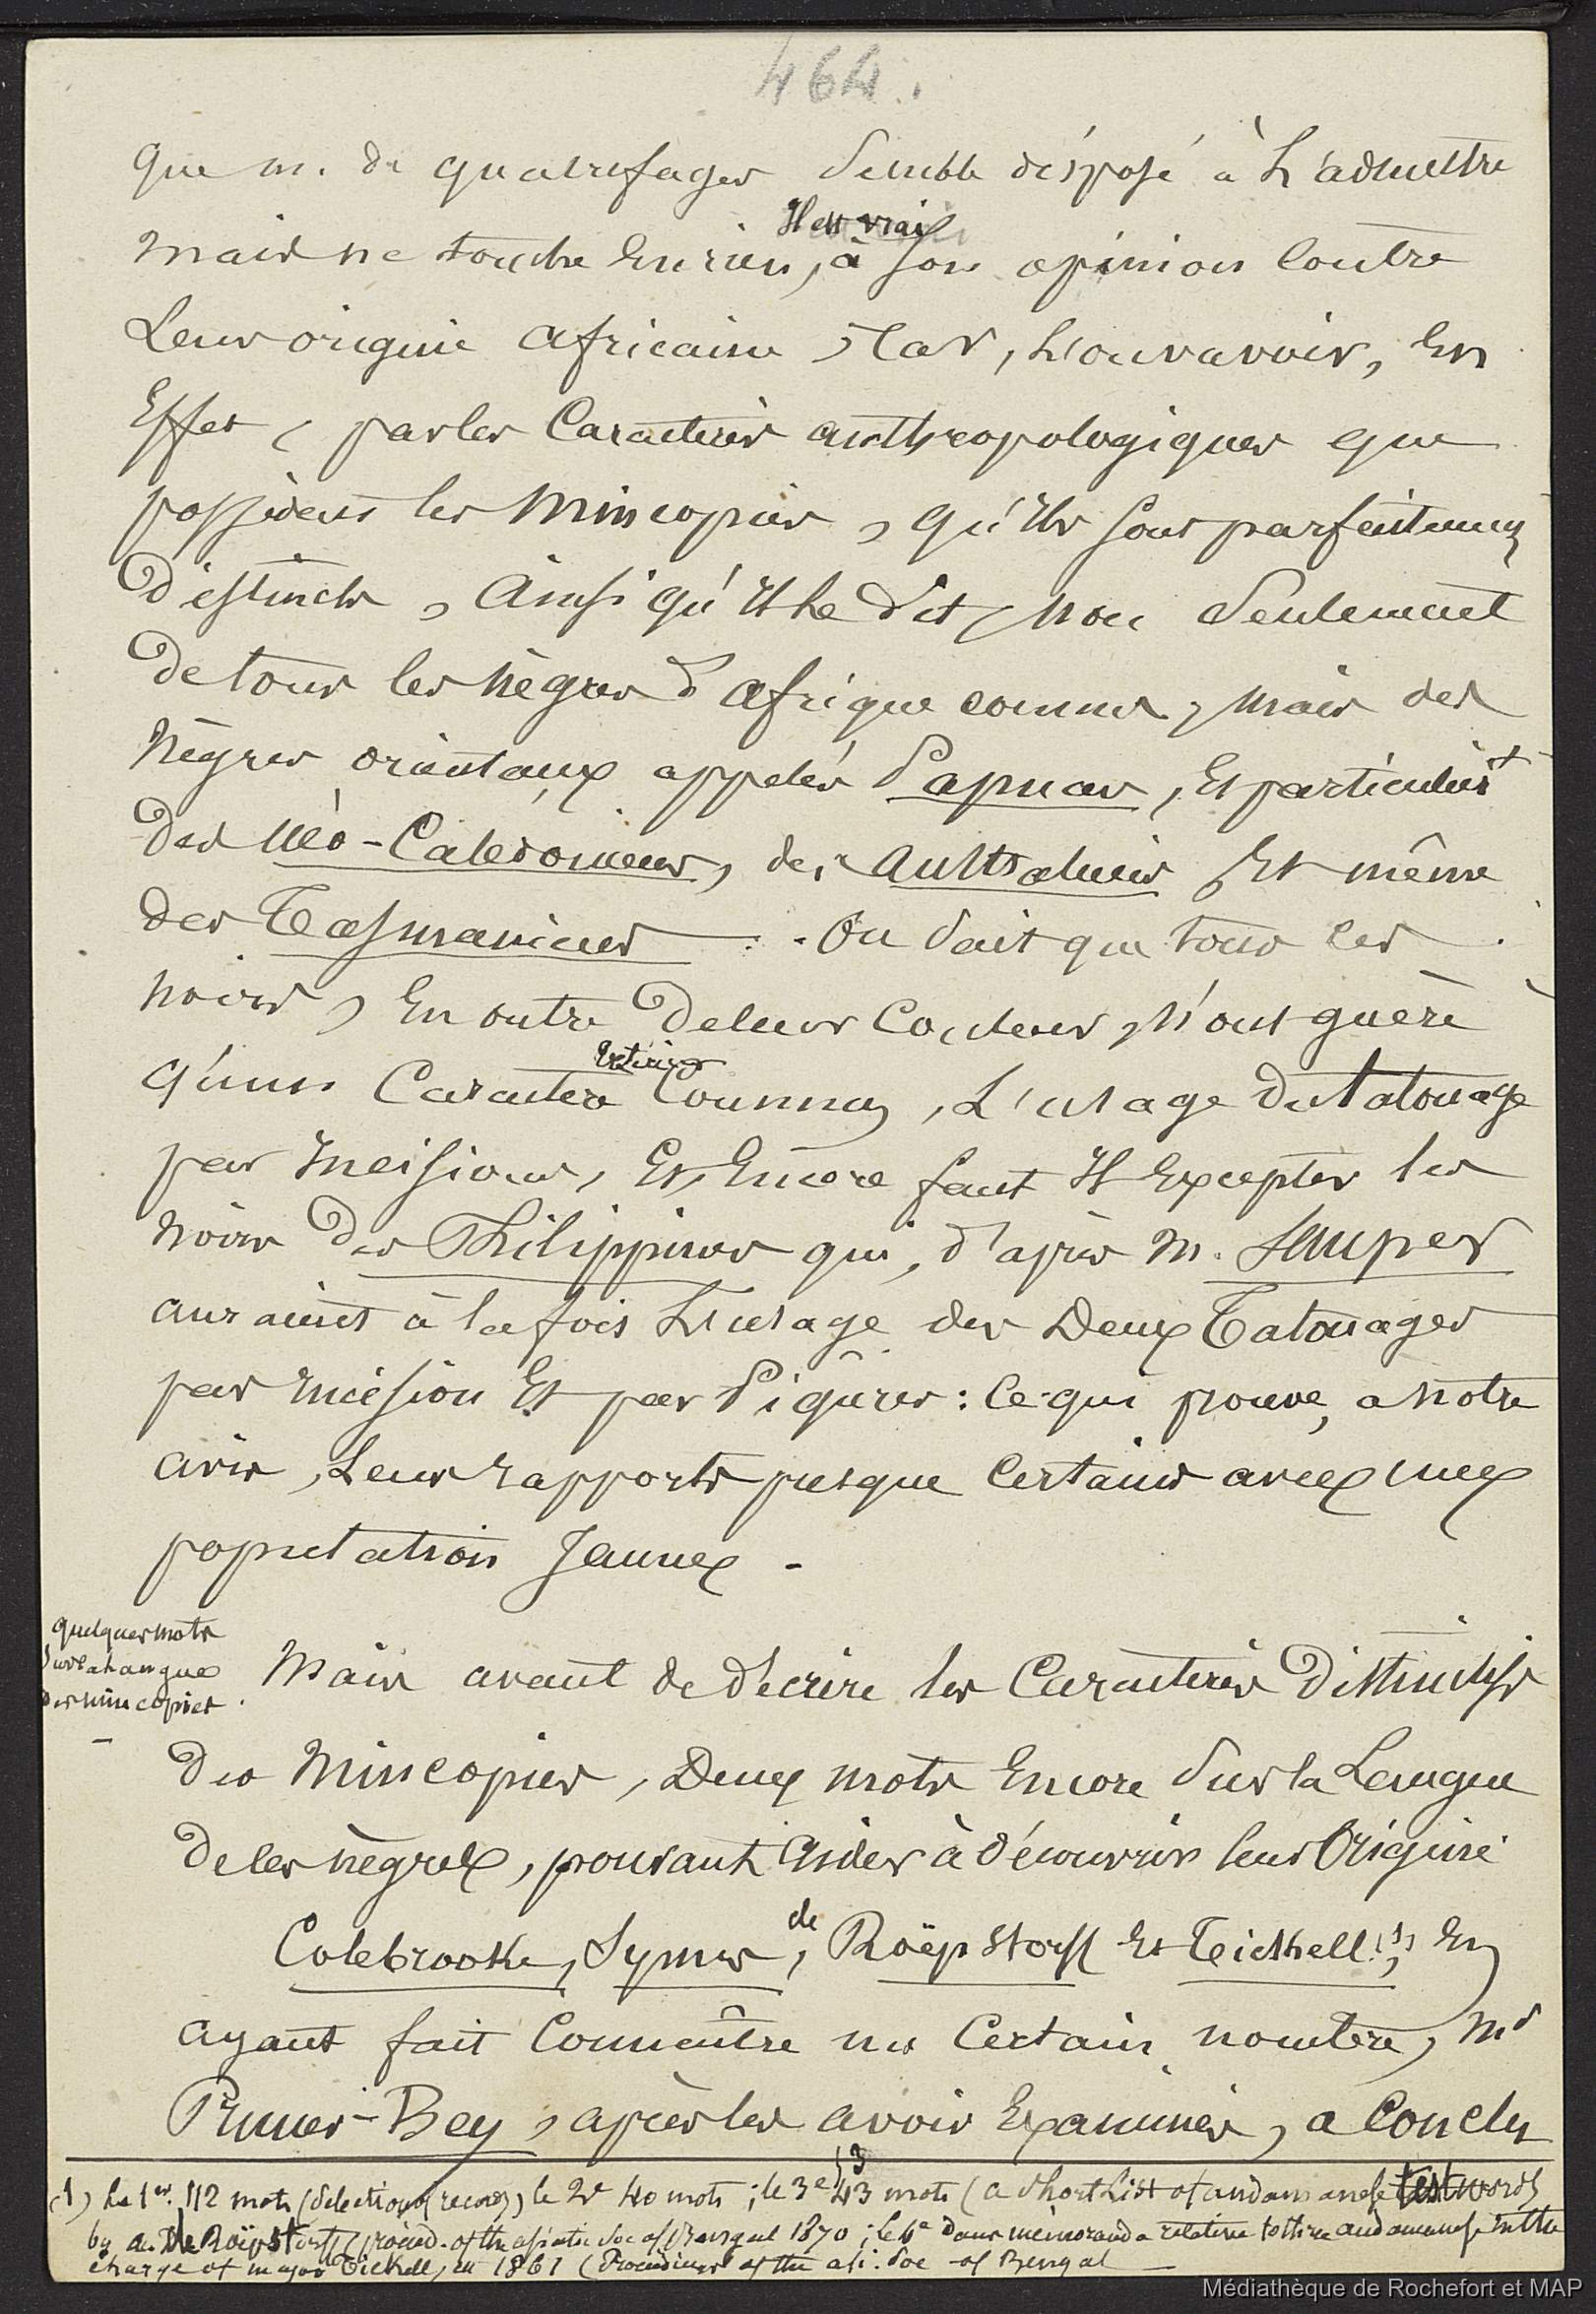 464.
que m. de quatrefages semble disposé à l'admettre
Il est vrai
mais ne touche en rien, à son opinion contre
leur origine africaine, car, l'on va voir, en
effet, par les caractères anthropologiques que
possèdent les mincopies, qu'ils sont parfaitement
distincts, ainsi qu'il le dit, non seulement
de tous les nègres d'afrique connus, mais des
nègres orientaux appelés Papuas, et particulièrt
des néo-Calédoniens, des australiens et même
des Tasmaniens. On sait que tous ces
noirs, en outre de leur couleur, n'ont guère
extérieur
q'un caractère commun, l'usage du tatouage
par incisions, et, encore faut il excepter les
noirs des Philippines qui, d'après m. Semper
auraient à la fois l'usage des deux tatouages
par incision et par piqûres: ce qui prouve, a notre
avis, leurs rapports presque certains avec une
population jaune.
quelques mots
sur la langue
des mincopies.
Mais avant de décrire les caractères distinctifs
des mincopies, deux mots encore sur la langue
de ces nègres, pouvant aider à découvrir leur origine
de
Colebrooke, Symes, Roëpstorff et Tickell (1), en
ayant fait connaître un certain nombre, mr
Pruner-Bey, après les avoir examinés, a conclu
(1) Le 1er 112 mots (selections records) le 2e 40 mots; le 3e 43 mots (a short list of andamanese test words
by a. de Roëpstorff (proceed. of the asiatic soc of Bengal 1870; le 4e dans memoranda relative to three andamanese in the
charge of major Tickell, en 1861 (Proceedings of the asi. soc of Bengal
Médiathèque de Rochefort et MAP